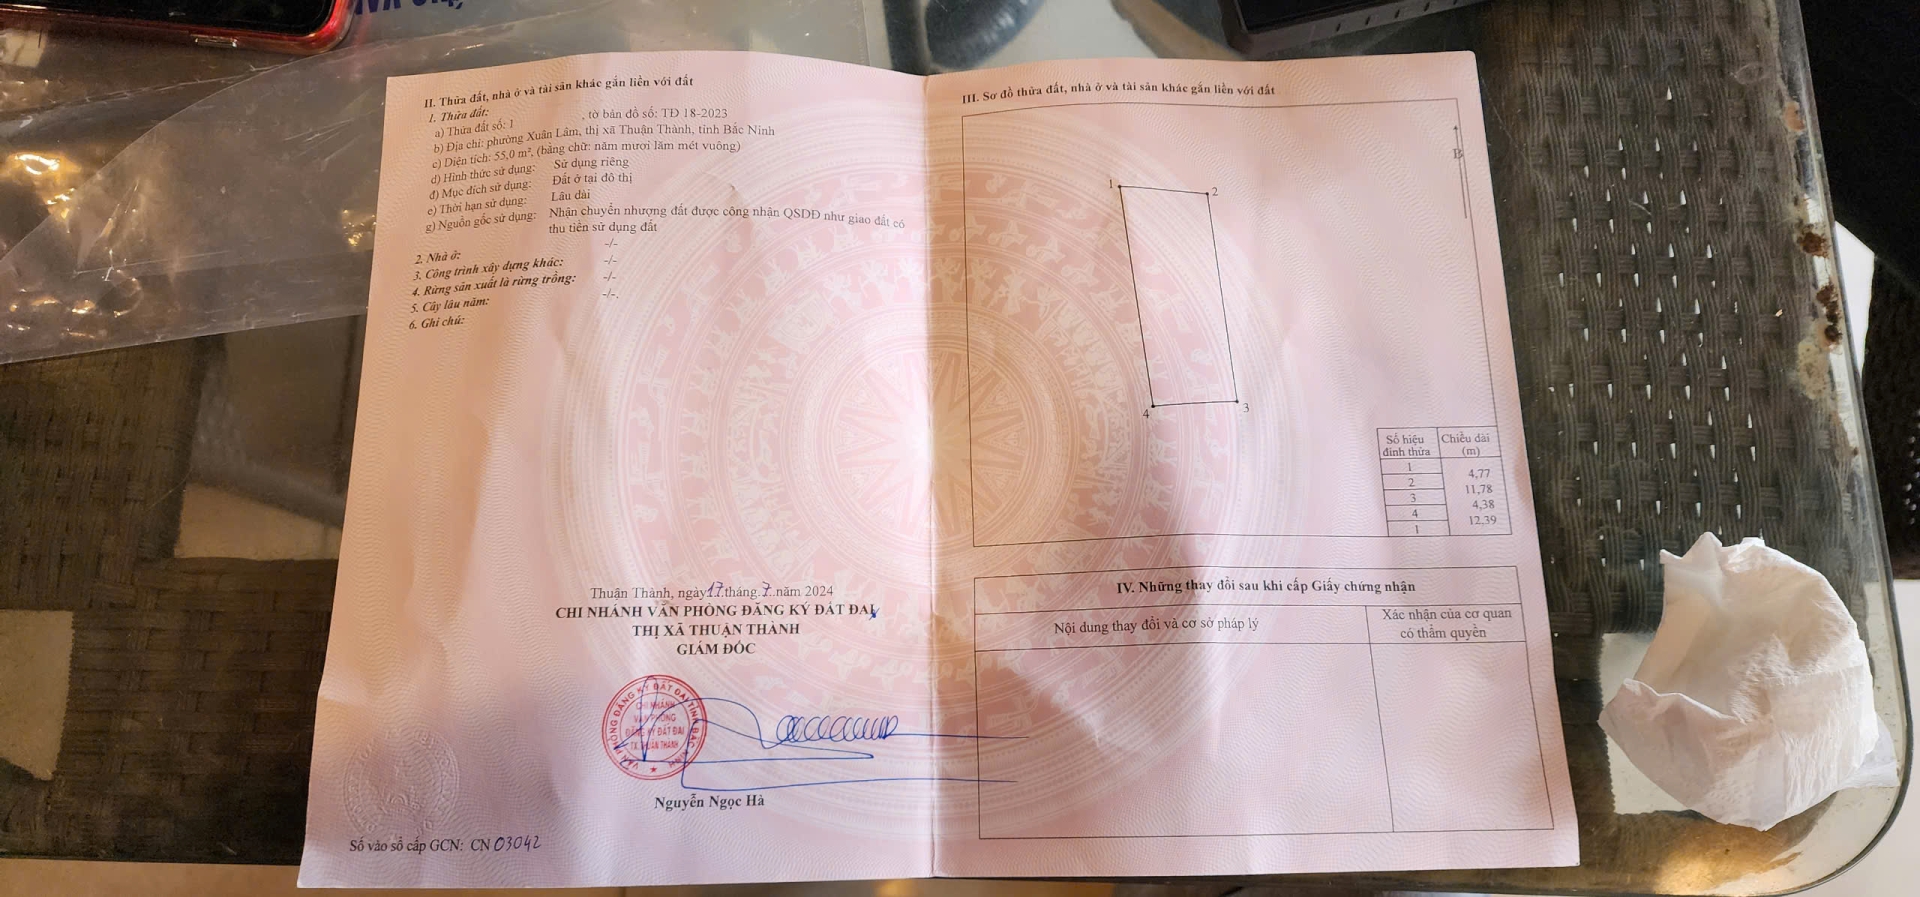 II. Thửa đất, nhà ở và tài sản khác gắn liền với đất
1. Thửa đất:
a) Thửa đất số: 1 , tờ bản đồ số: TĐ 18-2023
b) Địa chỉ: phường Xuân Lâm, thị xã Thuận Thành, tỉnh Bắc Ninh
c) Diện tích: 55,0 m², (bằng chữ: năm mươi lăm mét vuông)
d) Hình thức sử dụng: Sử dụng riêng
đ) Mục đích sử dụng: Đất ở tại đô thị
e) Thời hạn sử dụng: Lâu dài
g) Nguồn gốc sử dụng: Nhận chuyển nhượng đất được công nhận QSDĐ như giao đất có
thu tiền sử dụng đất
2. Nhà ở: -/-
3. Công trình xây dựng khác: -/-
4. Rừng sản xuất là rừng trồng: -/-
5. Cây lâu năm: -/-.
6. Ghi chú:
Thuận Thành, ngày 17 tháng 7 năm 2024
CHI NHÁNH VĂN PHÒNG ĐĂNG KÝ ĐẤT ĐAI
THỊ XÃ THUẬN THÀNH
GIÁM ĐỐC
VĂN PHÒNG ĐĂNG KÝ ĐẤT ĐAI TỈNH BẮC NINH
CHI NHÁNH
VĂN PHÒNG
ĐĂNG KÝ ĐẤT ĐAI
TX. THUẬN THÀNH
Nguyễn Ngọc Hà
Số vào sổ cấp GCN: CN 03042
III. Sơ đồ thửa đất, nhà ở và tài sản khác gắn liền với đất
B
1
2
3
4
Số hiệu đỉnh thửa
Chiều dài (m)
1
4,77
2
11,78
3
4,38
4
12,39
1
IV. Những thay đổi sau khi cấp Giấy chứng nhận
Nội dung thay đổi và cơ sở pháp lý
Xác nhận của cơ quan
có thẩm quyền